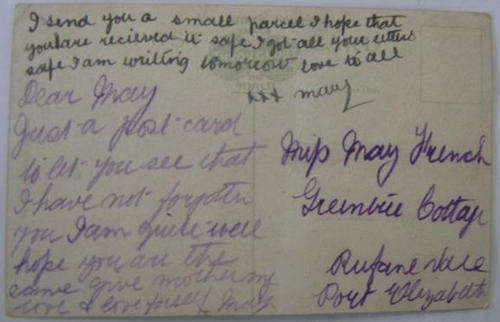 I send you a small parcel I hope that
you are recieved it safe I got all your letters
safe I am writing tomorrow love to all
xxx may
Dear May
Just a post card
to let you see that
I have not forgoten
you I am quite well
hope you are the
same give mother my
love & love
Miss May French
Greenbrie Cottage
Rufane Vale
Port Elizabeth